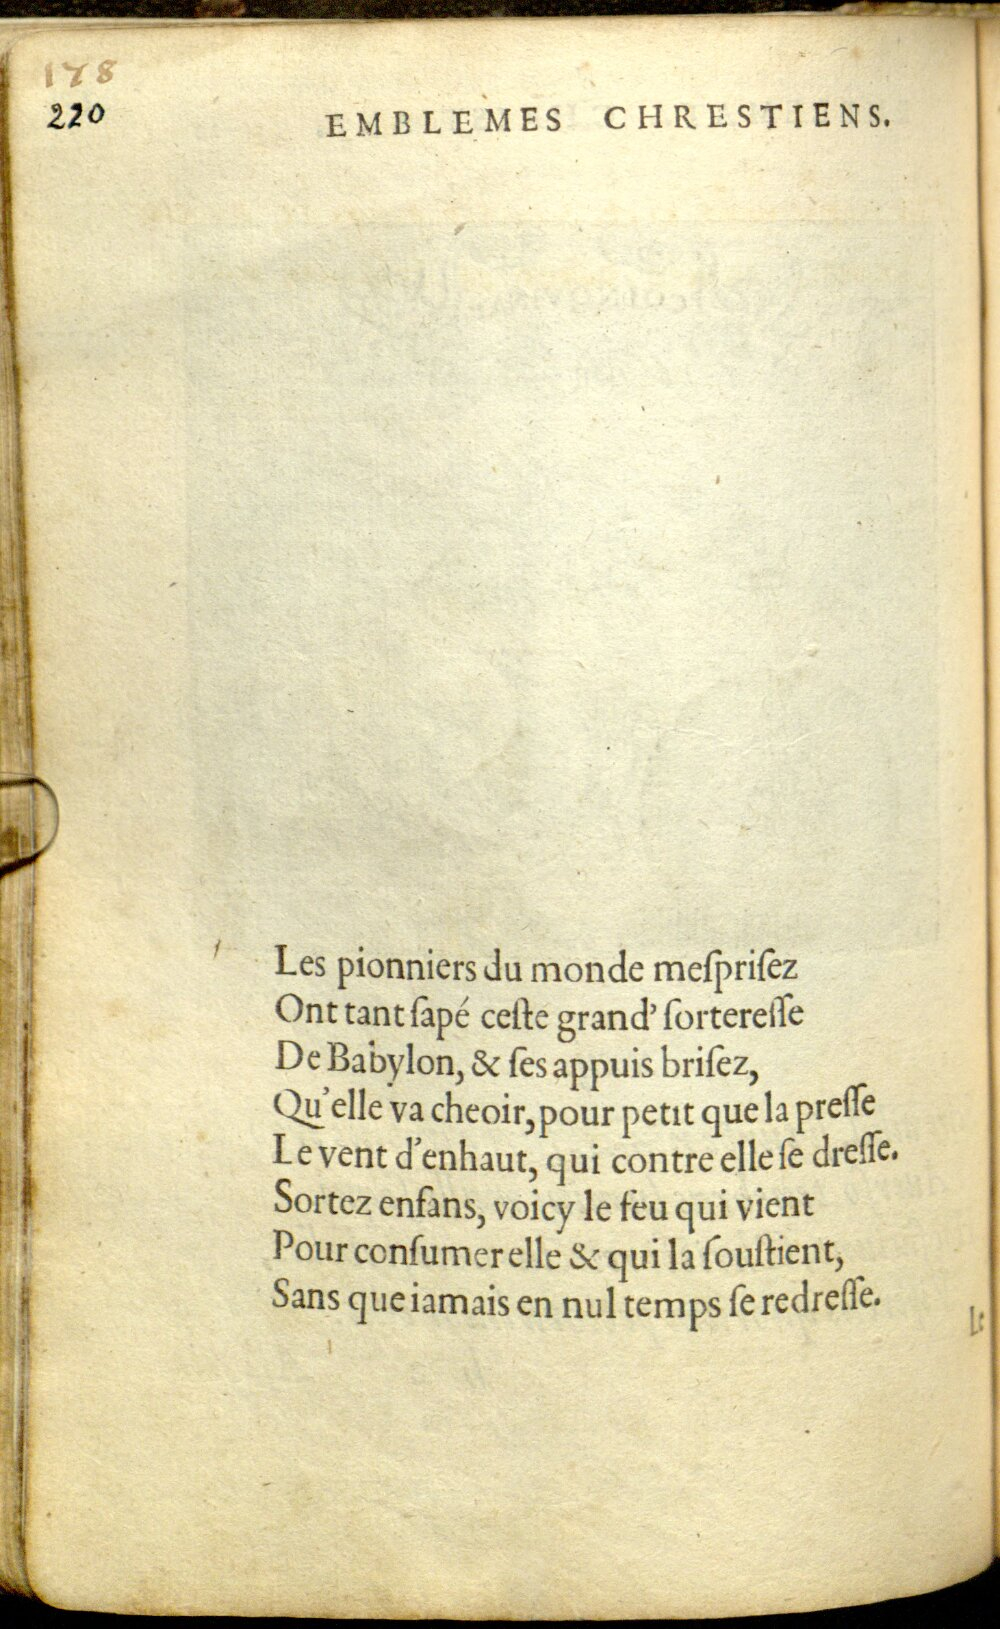 178
220
EMBLEMES CHRESTIENS.
Les pionniers du monde meſpriſez
Ont tant ſapé ceſte grand' ſortereſſe
De Babylon, & ſes appuis briſez,
Qu'elle va cheoir, pour petit que la preſſe
Le vent d'enhaut, qui contre elle ſe dreſſe.
Sortez enfans, voicy le feu qui vient
Pour conſumer elle & qui la ſouſtient,
Sans que iamais en nul temps ſe redreſſe.